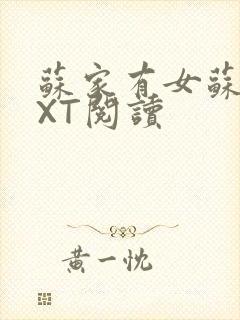 蘇家有女蘇
XT閱讀
黃一忱